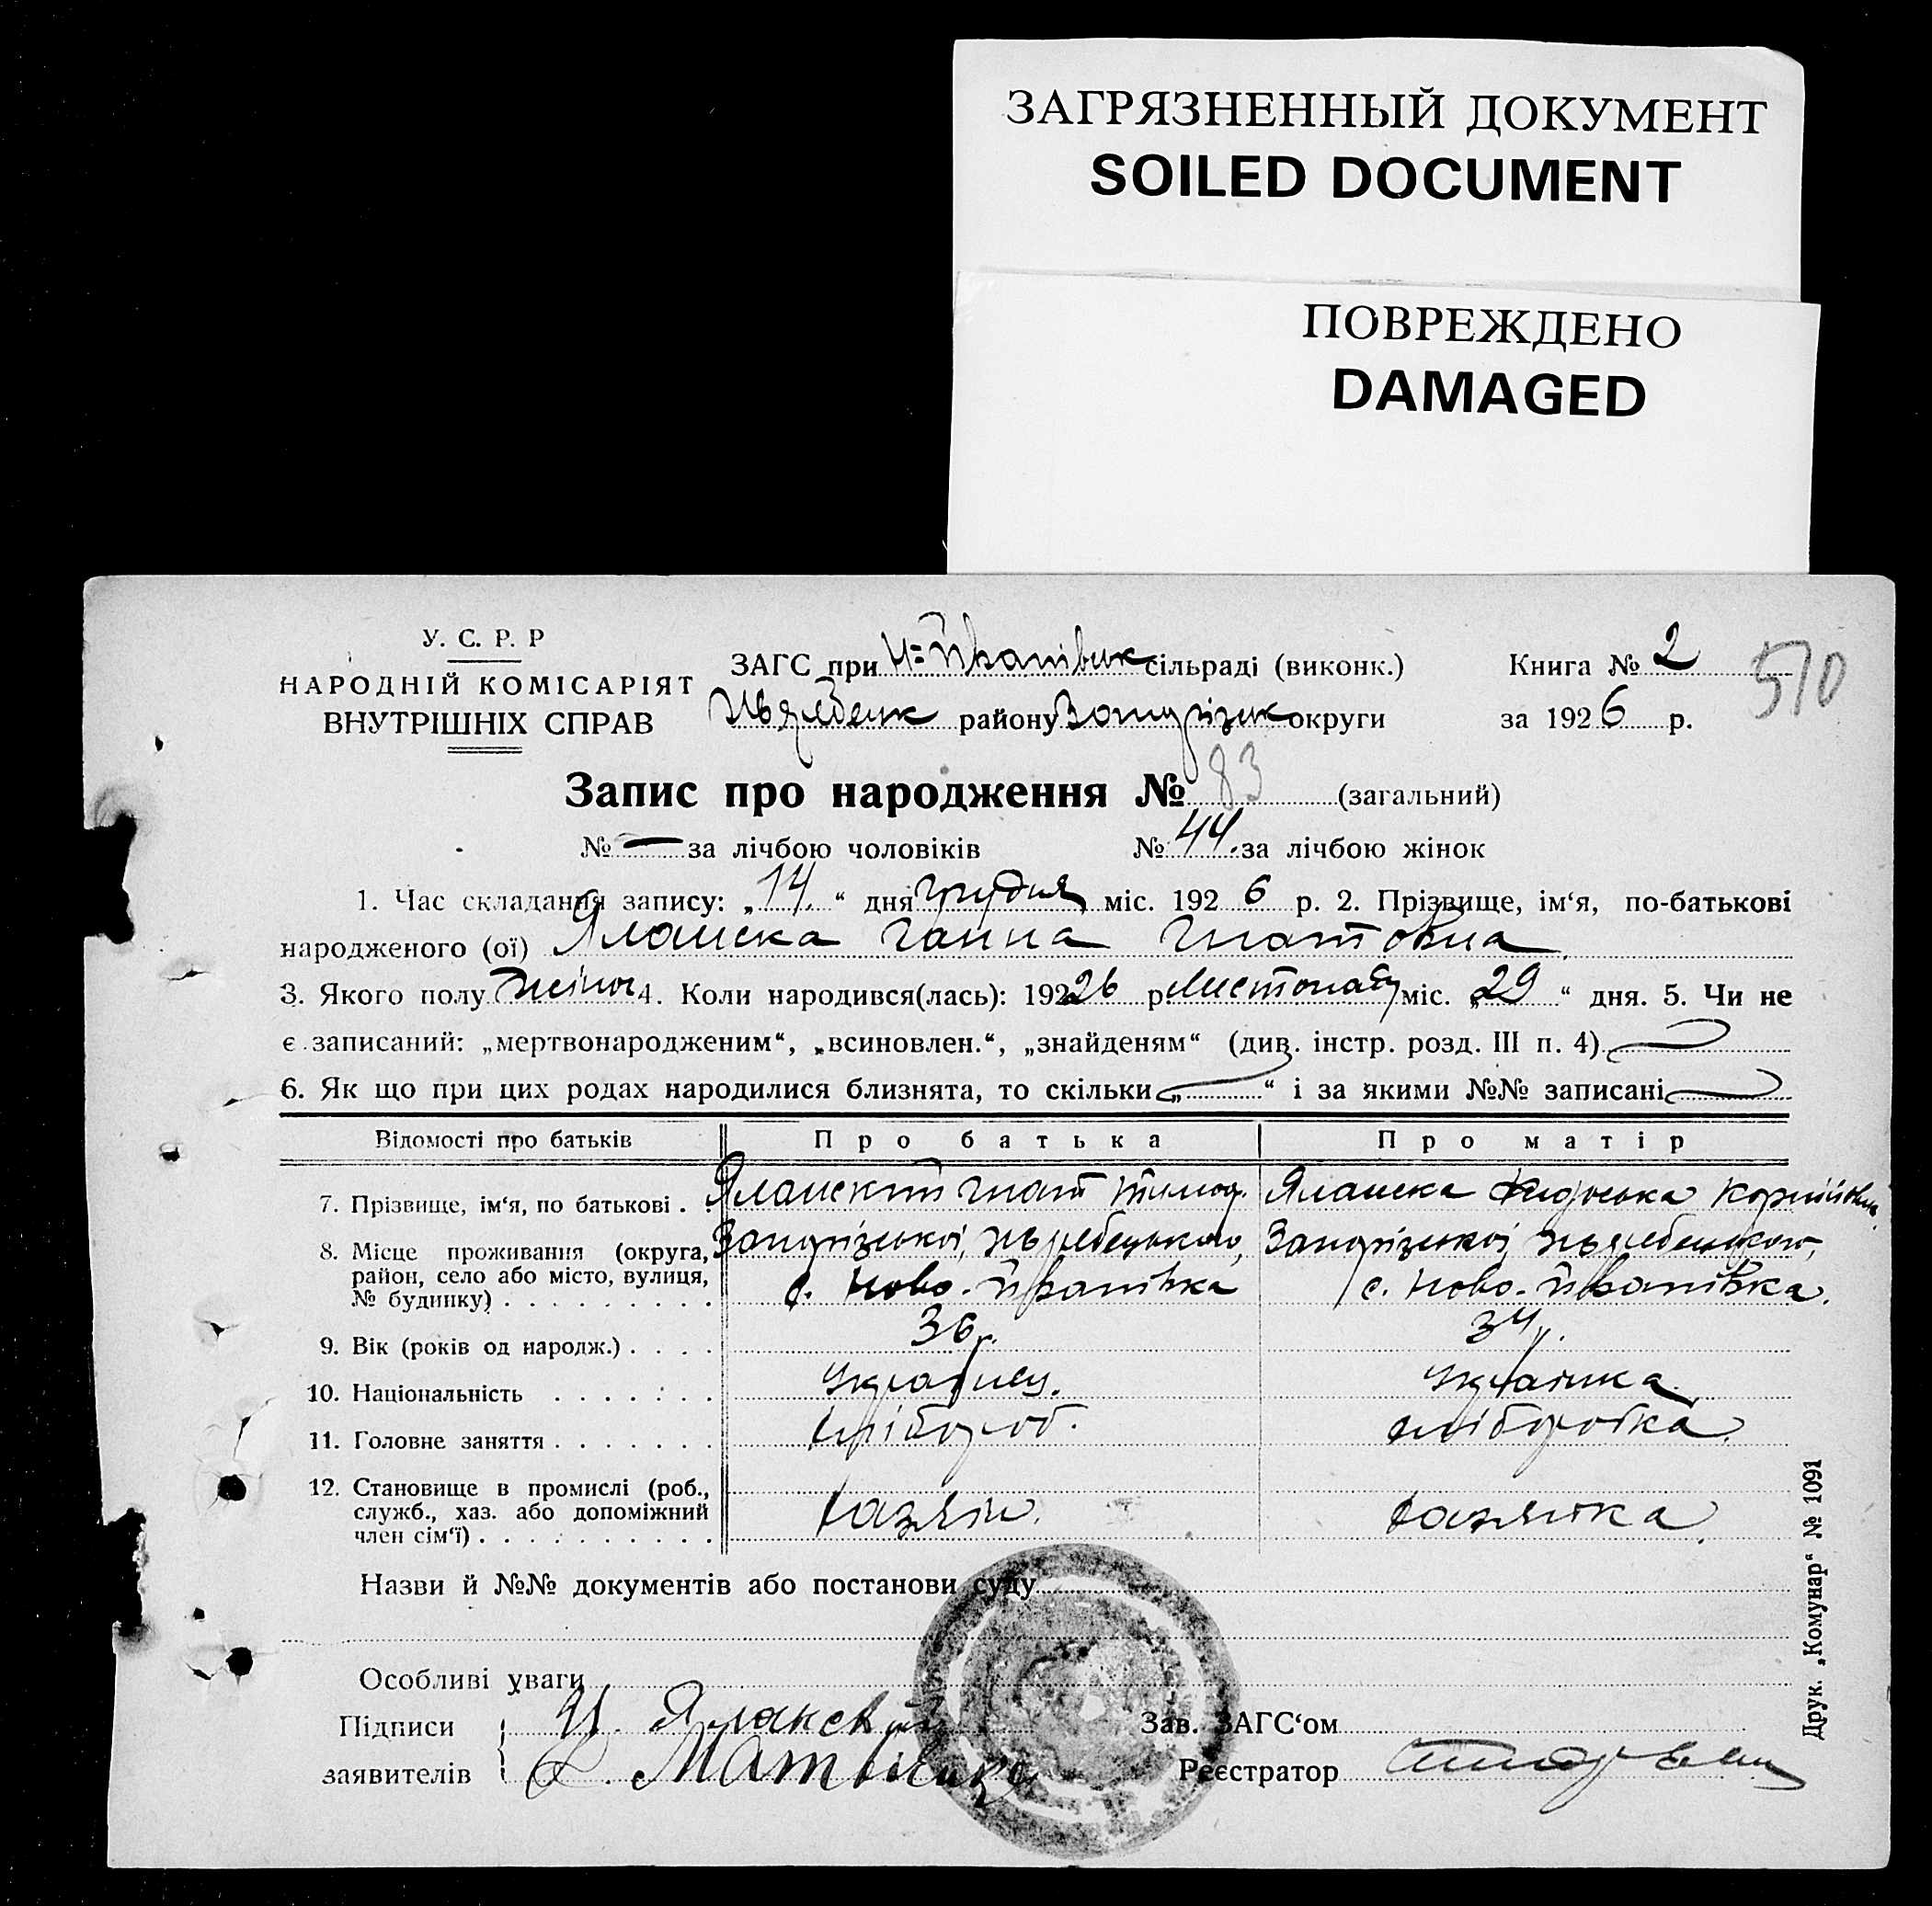 ЗАГРЯЗНЕННЫЙ ДОКУМЕНТ
SOILED DOCUMENT
ПОВРЕЖДЕНО
DAMAGED
У. С. Р. Р
НАРОДНІЙ КОМІСАРІЯТ
ВНУТРІШНІХ СПРАВ
ЗАГС при сільраді (виконк.)
району округи
Книга № 2
за 1926 р.
510
Запис про народження № 83 (загальний)
№ — за лічбою чоловіків № 44 за лічбою жінок
1. Час складання запису: „14“ дня грудня міс. 1926 р. 2. Прізвище, ім‘я, по-батькові
народженого (ої) Яланска Ганна Гнатовна
3. Якого полу жіноч 4. Коли народився(лась): 19226 р. листопаду міс. „29“ дня. 5. Чи не
є записаний: „мертвонародженим“, „всиновлен.“, „знайденям“ (див. інстр. розд. III п. 4)
6. Як що при цих родах народилися близнята, то скільки „ “ і за якими №№ записані
Відомості про батьків Про батька Про матір
7. Прізвище, ім‘я, по батькові . . Яланский Гнат Тимоф. Яланска Федоська Корнійовна
8. Місце проживання (округа, район, село або місто, вулиця, № будинку) . . . . . . . . .
с. Ново-Іванівка с. Ново-Іванівка.
9. Вік (років од народж.) . . . . 36 р. 34 р.
10. Національність . . . . . . . Українец. Українка.
11. Головне заняття . . . . . . . хлібороб. хліборобка.
12. Становище в промислі (роб., служб., хаз. або допоміжний член сім‘ї) . . . . . . . . . . хазяін. хазяйка.
Назви й №№ документів або постанови суду
Особливі уваги
Підписи
заявителів
Зав. ЗАГС‘ом
Реєстратор
Друк. „Комунар“ № 1091